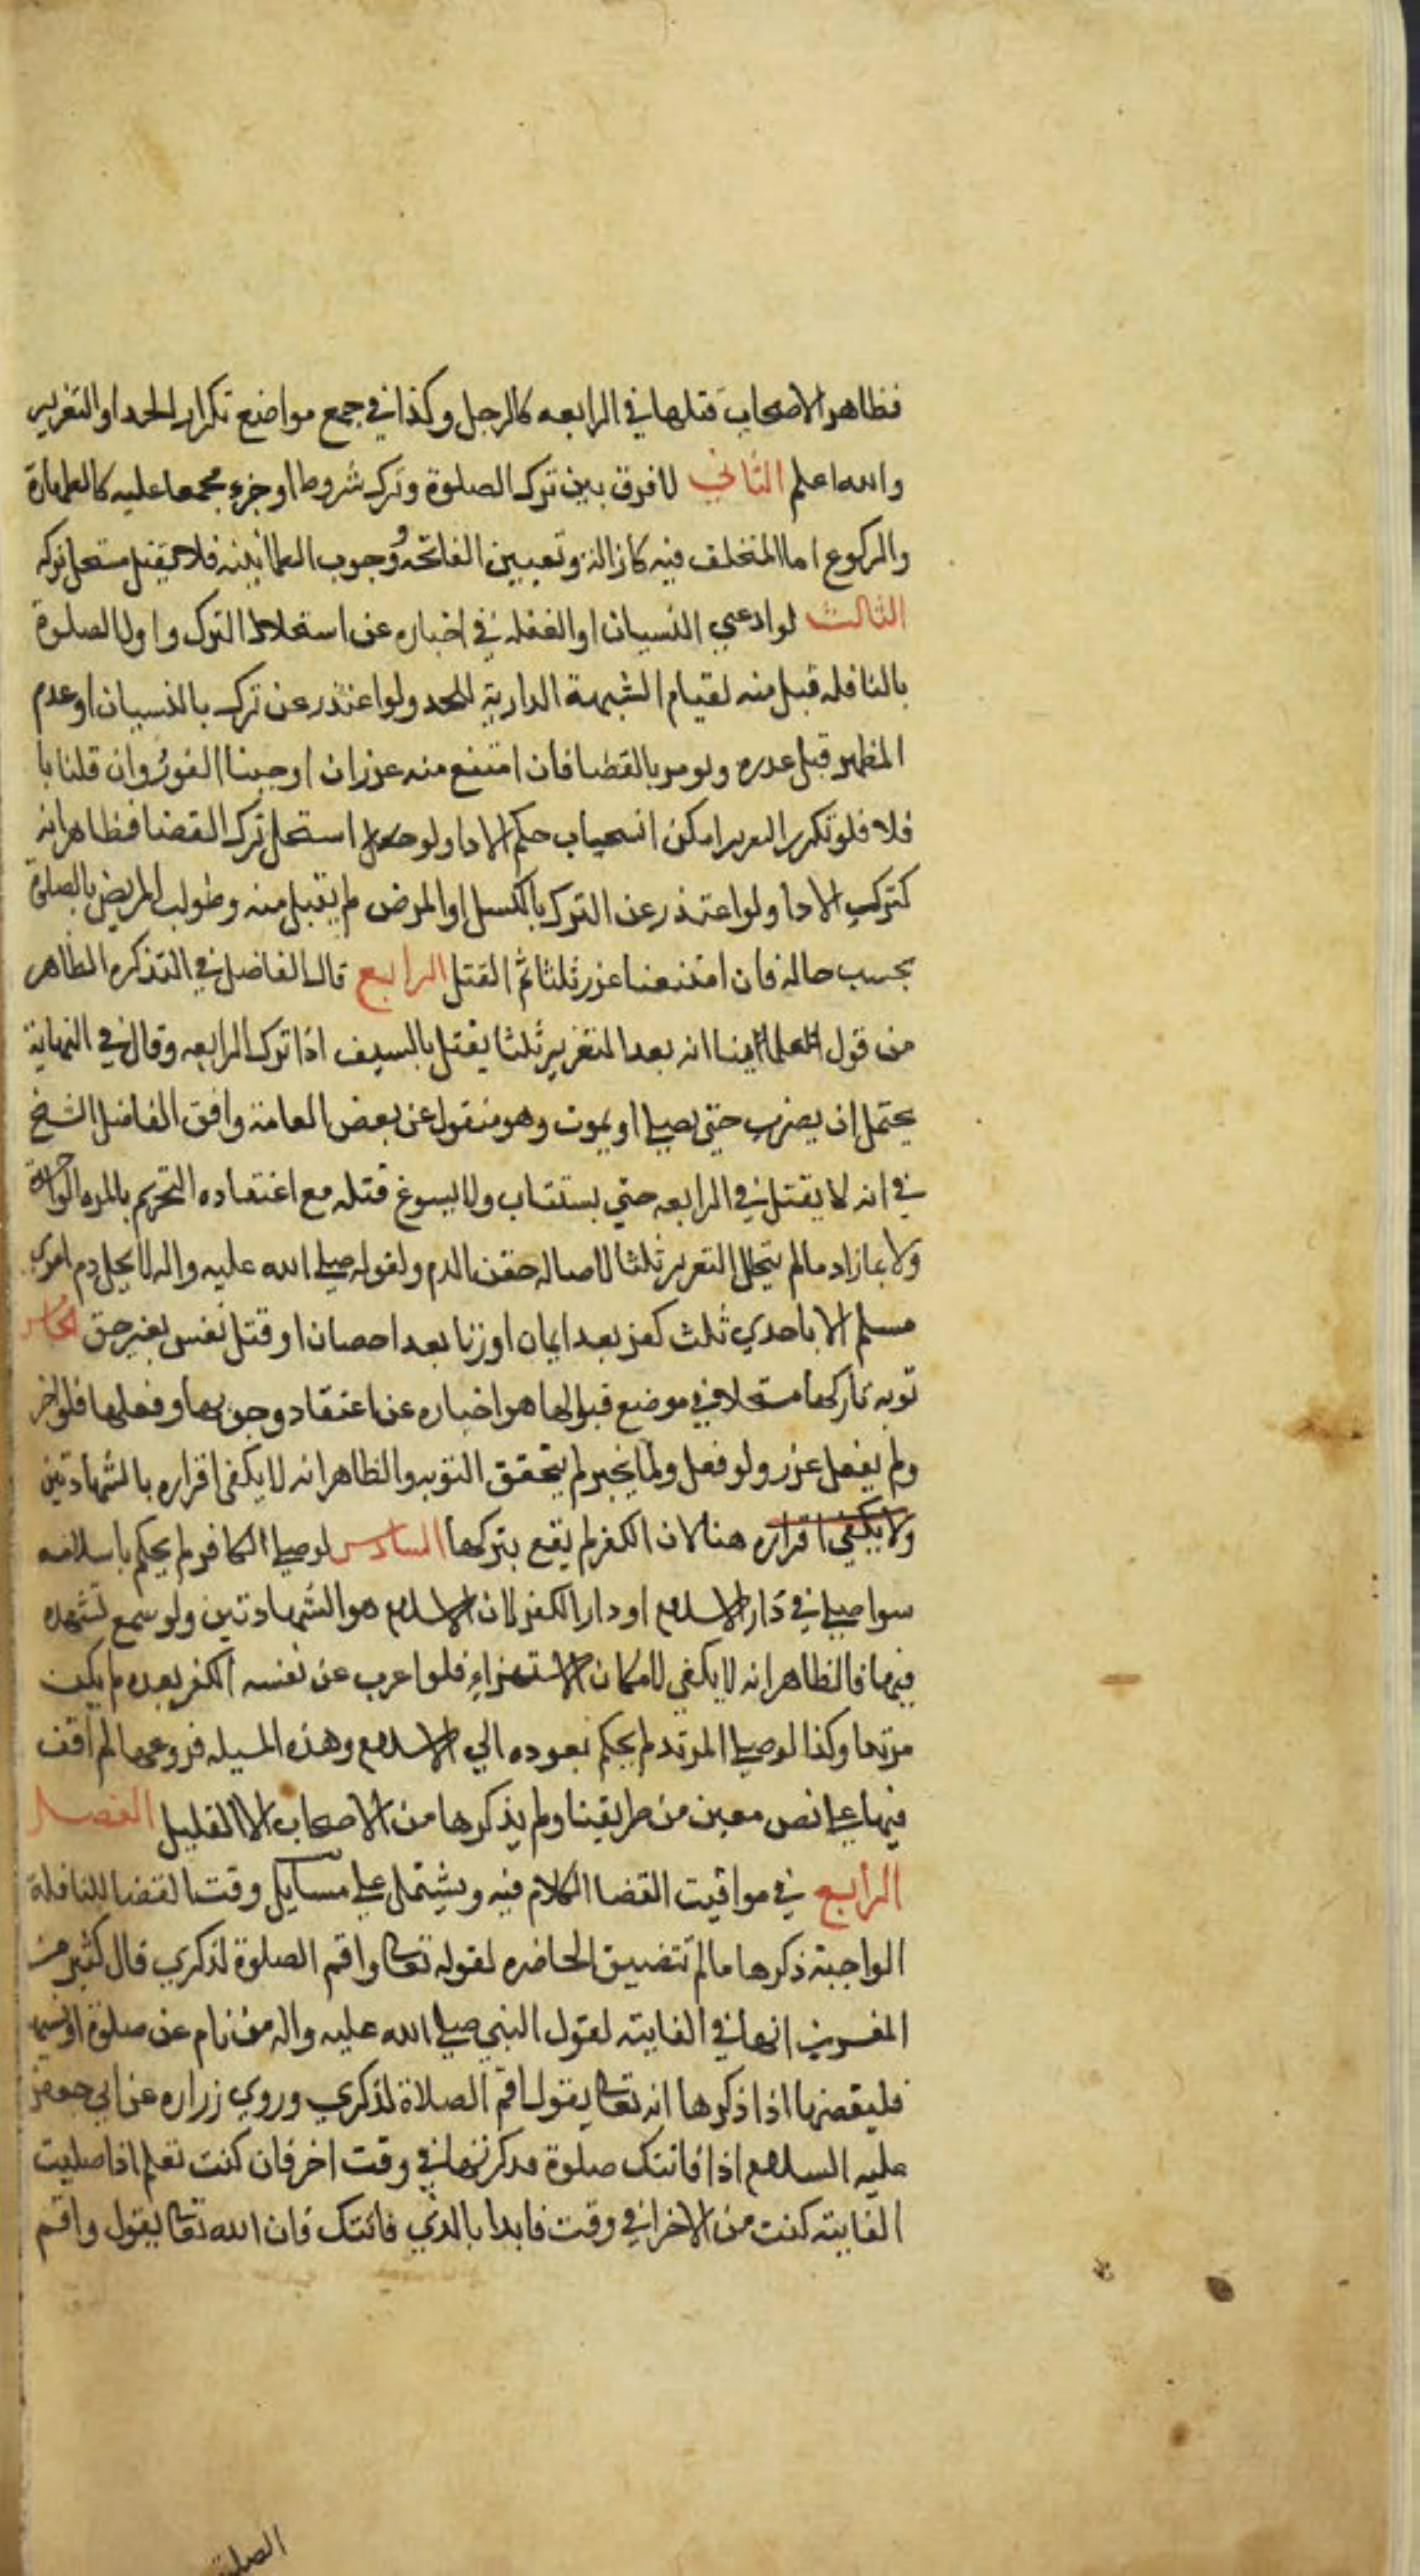 فظاهر الاصحاب قتلها في الرابعه كالرجل وكذا في جمع مواضع تكرار الحد او التعزير
والله اعلم الثاني لا فرق بين ترك الصلوة وترك شروط او جزء مجمعا عليه كالطهارة
والركوع اما المتخلف فيه كازالة وتعيين الفاتحة ووجوب الطمانينه فلا يقتل مستحل تركه
الثالث لو ادعي النسيان او الغفله في اخباره عن استحلال الترك واول الصلوة
بالنافله قبل منه لقيام الشبهة الدارية للحد ولو اعتذر عن ترك بالنسيان او عدم
المطهر قبل عدره ويومر بالقضا فان امتنع منه عزر ان اوجبنا الفور وان قلنا با
فلا فلو تكرر العرير امكن انسحياب حكم الادا ولو استحل ترك القضا فظاهر انه
كترك الادا ولو اعتذر عن الترك بالكسل او المرض لم يقبل منه وطولب المريض بالصلوة
بحسب حاله فان امتنعنا عزر ثلثا ثم القتل الرابع قال الفاضل في التذكره الظاهر
من قول علمائنا انه بعد التعزير ثلثا يقتل بالسيف اذا ترك الرابعه وقال في النهاية
يحتمل ان يضرب حتي يصلي او يموت وهو منقول عن بعض العامة وافق الفاضل الشيخ
في انه لا يقتل في الرابعه حتي يستتاب ولا يسوغ قتله مع اعتقاده التحريم بالمره الواحدة
ولا بمازاد مالم يتخلل التعرير ثلثا لاصاله حقن الدم ولقوله صلي الله عليه واله لا يحل دم امرى
مسلم الا باحدي ثلث كفر بعد ايمان او زنا بعد احصان او قتل نفس بغير حق الخامس
توبه تاركها مستحلا في موضع قبولها هو اخباره عن اعتقاد وجوبها وفعلها فلو اخبر
ولم يفعل عزر ولو فعل ولما يخبر لم يتحقق التوبه والظاهر انه لا يكفى اقراره بالشهادتين
ولا يكفي اقراره هنا لان الكفر لم يقع بتركها السادس لو صلي الكافر لم يحكم باسلامه
سوا صلي في دار الاسلام او دار الكفر لان الاسلام هو الشهادتين ولو سمع تشهده
فيها فالظاهر انه لا يكفي لامكان الاستهزاء فلو اعرب عن نفسه الكفر بعده لم يكن
مرتدا وكذا لو صلي المرتد لم يحكم بعوده الي الاسلام وهذه المسيله فروعها لم اقف
فيها علي نص معين من طريقنا ولم يذكرها من الاصحاب الا القليل الفصل
الرابع في مواقيت القضا الكلام فيه ويشتمل علي مسايل وقت القضا للنافلة
الواجبة ذكرها مالم تتضيق الحاضره لقوله تعالى واقم الصلوة لذكري قال كثير من
المفسرين انها في الفايته لقول النبي صلي الله عليه واله من نام عن صلوة او نسيها
فليقضها اذا ذكرها انه تعالى يقول اقم الصلاة لذكري وروي زراره عن ابي جعفر
عليه السلام اذا فاتتك صلوة فدكرتها في وقت اخر فان كنت تعلم اذا صليت
الفايته كنت من الاخر في وقت فابدا بالذي فاتتك فان الله تعالى يقول واقم
الصلوة